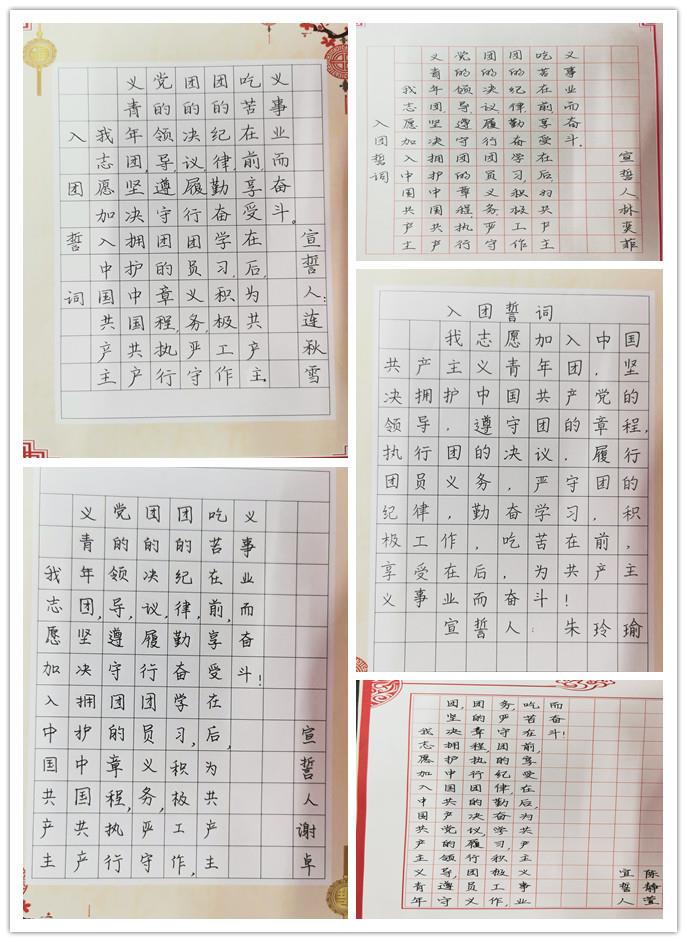 入团誓词
我志愿加入中国共产主
义青年团,坚决拥护中国共产
党的领导,遵守团的章程,执行
团的决议,履行团员义务,严守
团的纪律,勤奋学习,积极工作
吃苦在前,享受在后,为共产主
义事业而奋斗。
宣誓人:莲秋雪
入团誓词
我志愿加入中国共产主
义青年团,坚决拥护中国共产
党的领导,遵守团的章程,执行
团的决议,履行团员义务,严守
团的纪律,勤奋学习,积极工作
吃苦在前,享受在后,为共产主
义事业而奋斗.
宣誓人.林奕菲
我志愿加入中国共产主
义青年团,坚决拥护中国共产
党的领导,遵守团的章程,执行
团的决议,履行团员义务,严守
团的纪律,勤奋学习,积极工作,
吃苦在前,享受在后,为共产主
义事业而奋斗!
宣誓人谢卓
入团誓词
我志愿加入中国
共产主义青年团,坚
决拥护中国共产党的
领导,遵守团的章程,
执行团的决议,履行
团员义务,严守团的
纪律,勤奋学习,积
极工作,吃苦在前,
享受在后,为共产主
义事业而奋斗!
宣誓人:朱玲瑜
我志愿加入中国共产主义青年
团,坚决拥护中国共产党的领导,遵守
团的章程,执行团的决议,履行团员义
务,严守团的纪律,勤奋学习,积极工作,
吃苦在前,享受在后,为共产主义事业
而奋斗!
宣誓人
陈静莹